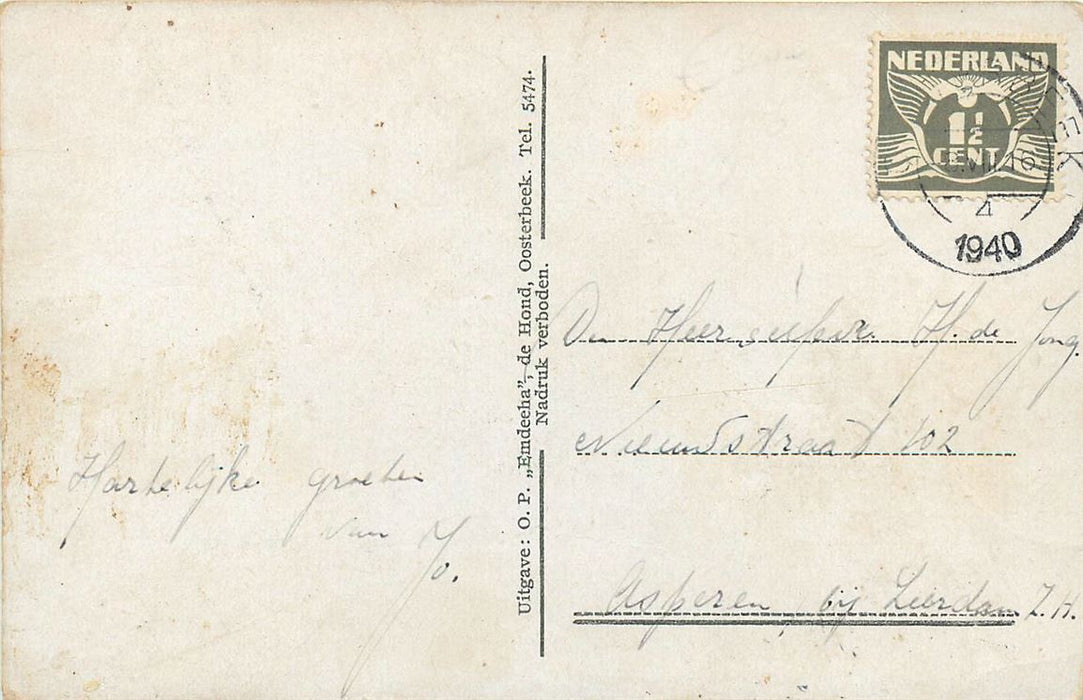 Hartelijke groeten
van
Jo.
Uitgave: O. P. „Emdeeha”, de Hond, Oosterbeek. Tel. 5474.
Nadruk verboden.
NEDERLAND
1½
CENT
VII 16
4
1940
Den Heer H. de Jong.
Nieuwstraat 102
Asperen bij Leerdam Z.H.